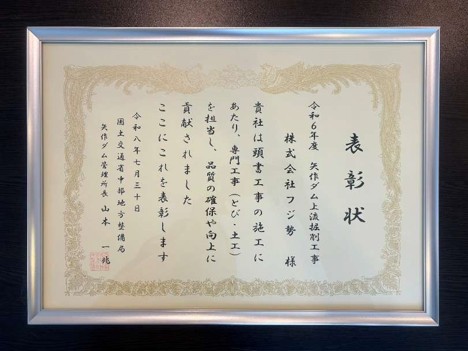 表彰状
令和6年度 矢作ダム上流掘削工事
株式会社フジ勢 様
貴社は頭書工事の施工に
あたり、専門工事(とび・土工)
を担当し、品質の確保や向上に
貢献されました
ここにこれを表彰します
令和八年七月三十日
国土交通省中部地方整備局
矢作ダム管理所長 山本 一浩